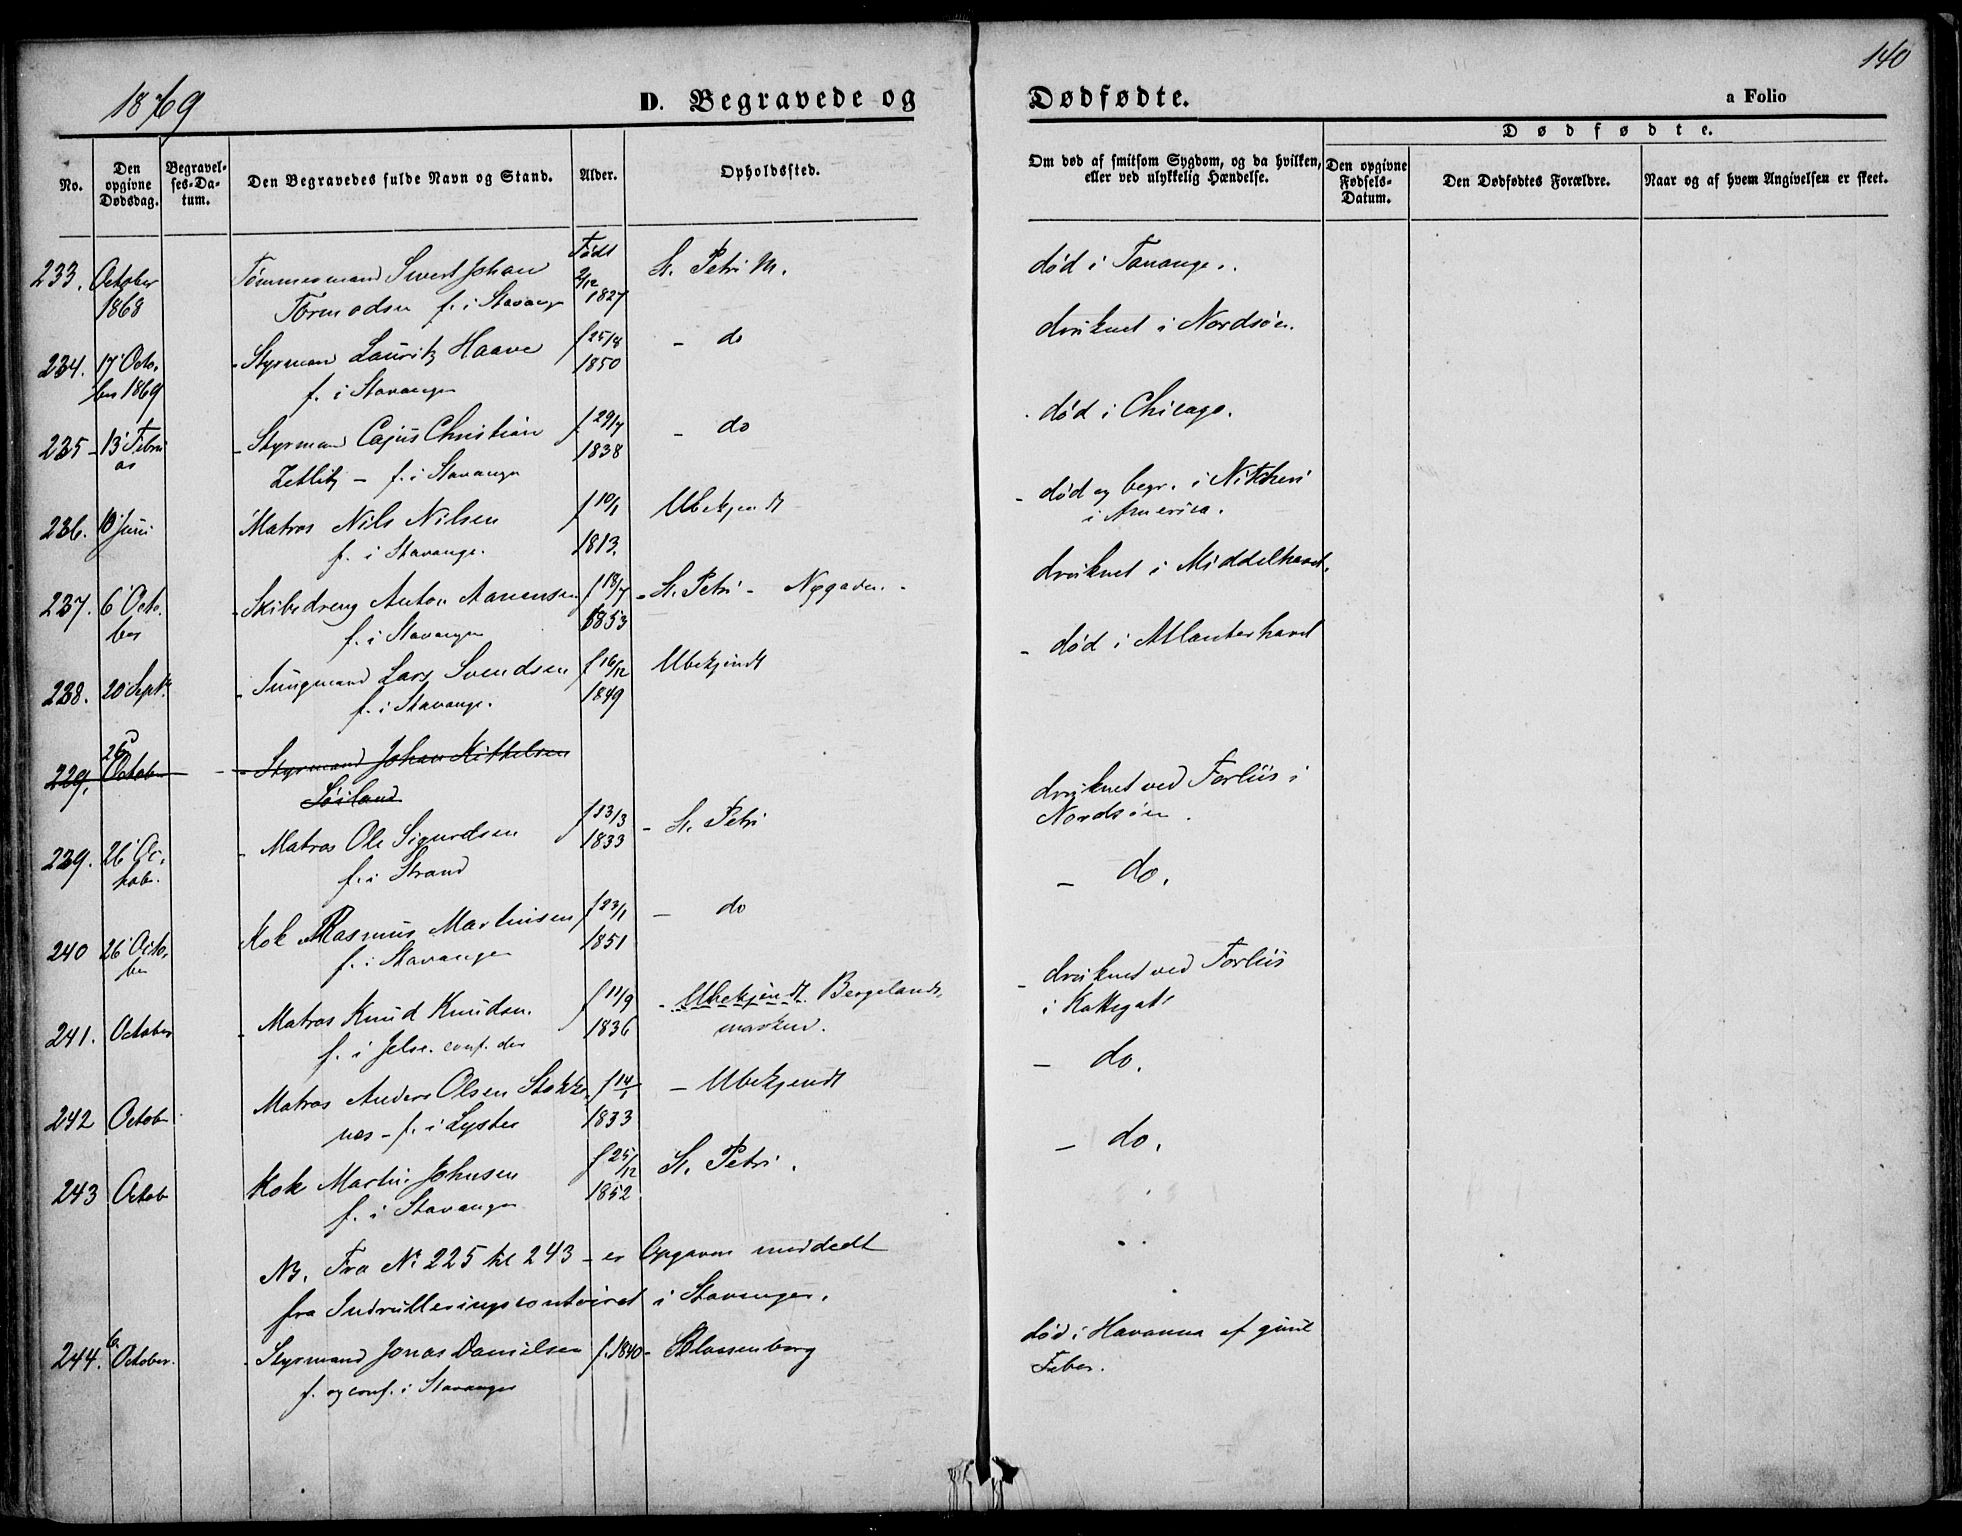 1869
D. Begravede og
Dødfødte.
a Folio
140
No.
Den opgivne Dødsdag.
Begravelses-Datum.
Den Begravedes fulde Navn og Stand.
Alder.
Opholdssted.
Om død af smitsom Sygdom, og da hvilken, eller ved ulykkelig Hændelse.
Dødfødte.
Den opgivne Fødsels-Datum.
Den Dødfødtes Forældre.
Naar og af hvem Angivelsen er skeet.
233. October Tømmermand Sivert Johan Født 2/12 St. Petri M. død i Tananger.
1868 Tormodsen f. i Stavanger 1827
234. 17 Octo- Styrman Lauritz Haave f 25/8 - do druknet i Nordsøen.
ber 1869 f. i Stavanger 1850
235 - 13 Febru Styrmand Cajus Christian f. 29/7 - do død i Chicago.
ar Zetlitz - f. i Stavanger 1838
236. 10 Juni Matros Nils Nilsen f 10/1 Ubekjendt - død og begr. i
f. i Stavanger. 1813. i America.
237. 6 Octo- Skibsdreng Anton f 18/7 - St. Petri - Nygaden. druknet i Middelhavet.
ber f. i Stavanger 1853
238. 20 Septbr - Jungmand Lars Svendsen f 16/12 Ubekjendt - død i Atlanterhavet
f. i Stavanger. 1849
229. 26 October - Styrmand Johan Kittelsen
Soiland
239. 26 Oc- - Matros Ole Sigurdsen f 13/3 - St. Petri druknet ved Forliis i
tob. f. i Strand 1833 Nordsøen.
240 26 Octo- Kok Rasmus Martinsen f 23/1 - do - do.
ber f. i Stavanger 1851
241. October - Matros Knud Knudsen. f 11/9 - Ubekjendt. Bergelands- - druknet ved Forliis
f. i Jelse. conf. der 1836 marken. i Kattegat
242 Octob Matros Anders Olsen Stokke- f 14/1 - Ubekjendt - do.
næs - f. i Lyster 1833
243 Octob Kok Martin Johnsen f 25/12 St. Petri. - do.
f. i Stavanger 1852
NB. Fra No 225 til 243 - er Opgaven meddelt
fra Indrulleringscontoiret i Stavanger.
244. 6 October. - Styrmand Jonas Danielsen f. 1840 - Blaasenborg død i Havanna af guul
f. og conf. i Stavanger Feber.